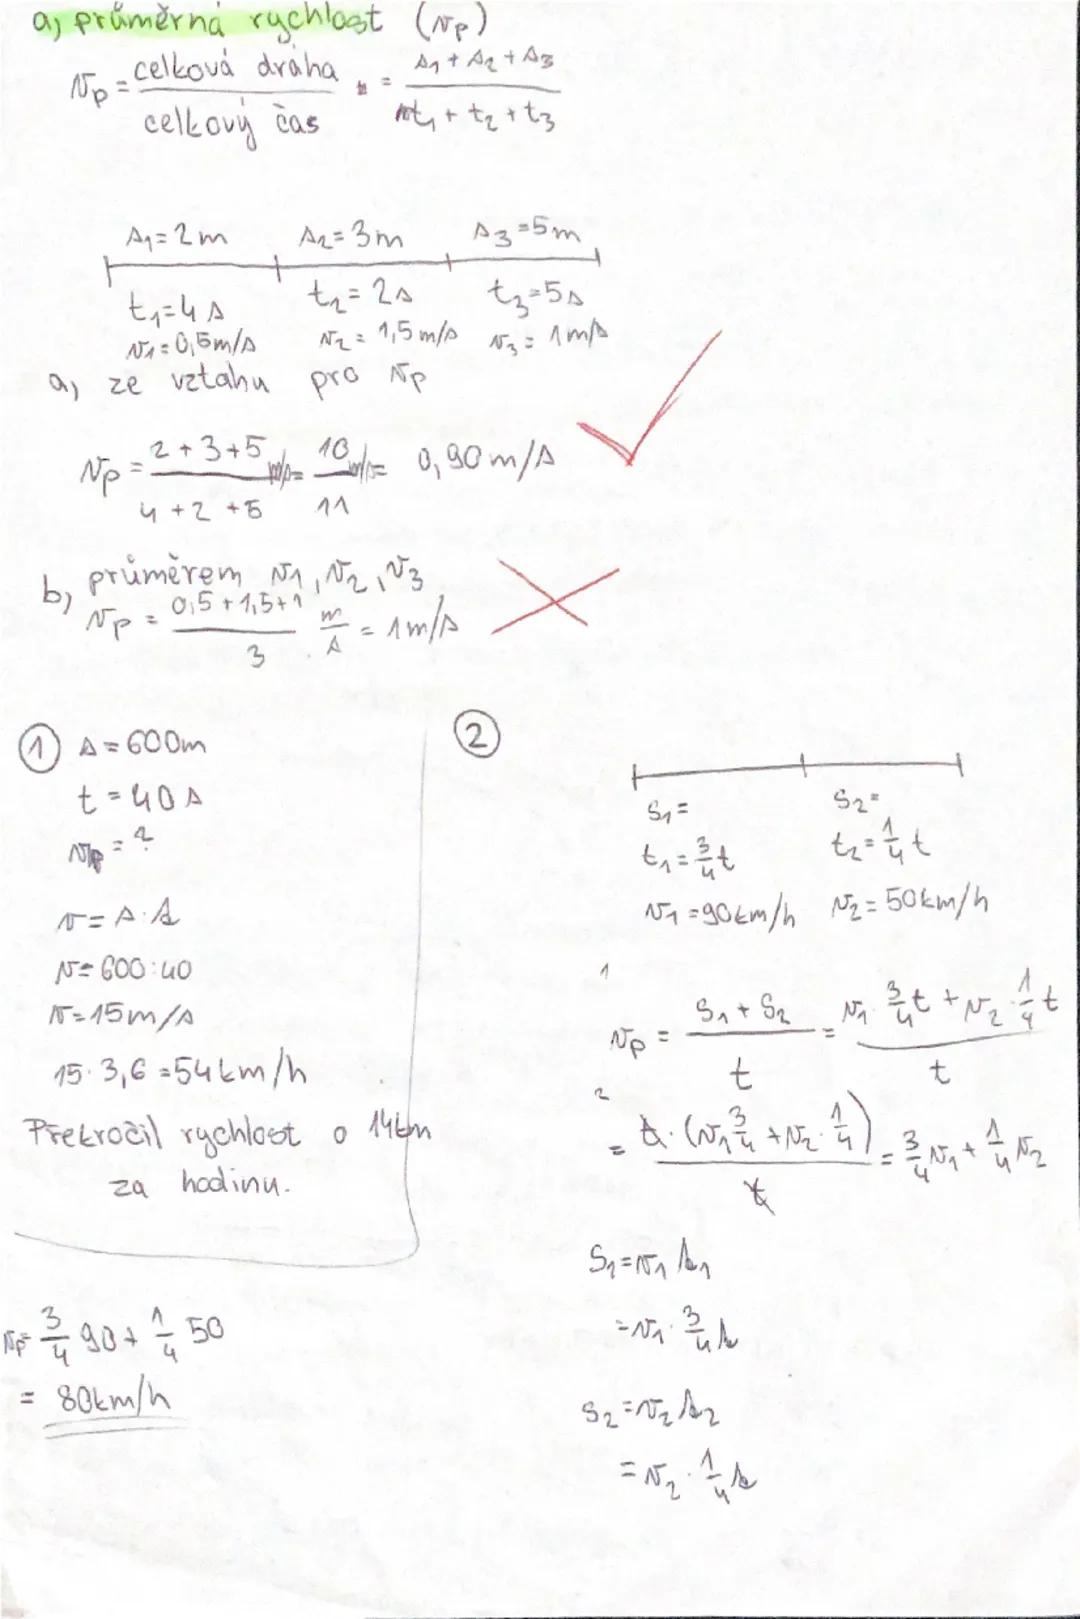 a) průměrná rychlost (vp)
vp = celková dráha / celkový čas = s1 + s2 + s3 / t1 + t2 + t3
s1 = 2m s2 = 3m s3 = 5m
t1 = 4s t2 = 2s t3 = 5s
v1 = 0,5m/s v2 = 1,5m/s v3 = 1m/s
a) ze vztahu pro vp
vp = 2 + 3 + 5 / 4 + 2 + 5 m/s = 10 / 11 m/s = 0,90 m/s
b) průměrem v1, v2, v3
vp = 0,5 + 1,5 + 1 / 3 m/s = 1m/s
1
s = 600m
t = 40s
vp = ?
v = s : t
v = 600 : 40
v = 15m/s
15 · 3,6 = 54km/h
Překročil rychlost o 14km
za hodinu.
2
s1 = s2 =
t1 = 3/4 t t2 = 1/4 t
v1 = 90km/h v2 = 50km/h
1
vp = s1 + s2 / t = v1 · 3/4 t + v2 · 1/4 t / t
2
= t · (v1 3/4 + v2 · 1/4) / t = 3/4 v1 + 1/4 v2
s1 = v1 t1
= v1 · 3/4 t
s2 = v2 t2
= v2 · 1/4 t
vp = 3/4 90 + 1/4 50
= 80km/h